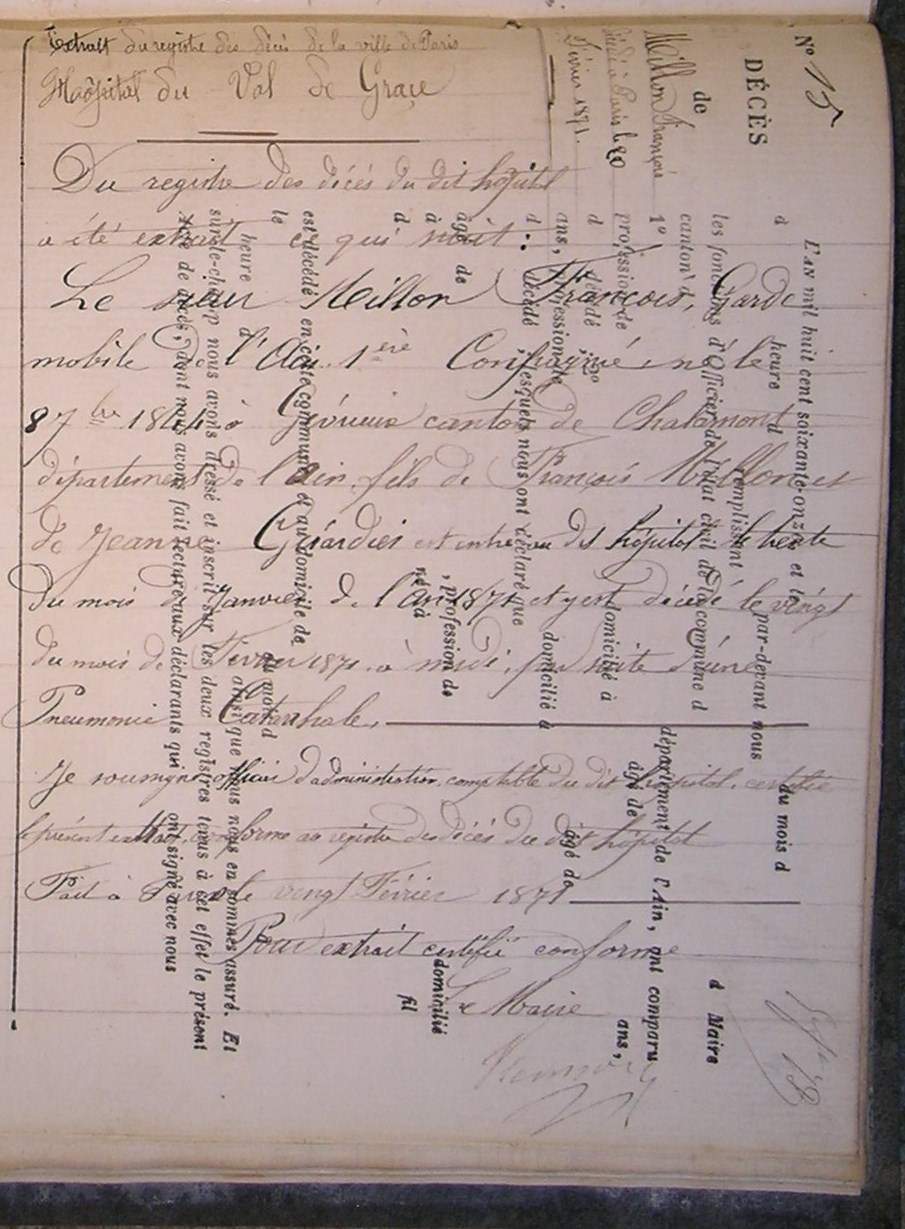 Extrait du registre des décès de la ville de Paris
Hôpital du Val de Grace
Du registre des décés du dit hôpital
a été extrait ce qui suit :
Le sieur Millon François, Garde
mobile de l'Ain 1ère Compagnie né le
8 7bre 1844 à canton de Chalamont
département de l'Ain, fils de François Millon et
de Jeanne est entré au dit hôpital le trente
du mois de Janvier de l'an 1871 et y est décédé le vingt
du mois de Février 1871 à midi, par suite d'une
Pneumonie Catarrhale.
Je soumigné officier d'administration comptable du dit hôpital, certifie
le présent extrait conforme au registre des décés du dit hôpital
Fait à Paris le vingt Février 1871
Pour extrait certifié conforme
Le Maire
No 15
DÉCÈS
de
Millon François
décédé à Paris le 20
Février 1871.
L'AN mil huit cent soixante-onze et le du mois d
à heure d par-devant nous
remplissant d Maire
les fonctions d'Officier de l'état civil de la commune d
canton d département de l'Ain, ont comparu
1º âgé de ans,
profession de domicilié à
d décédé 2º âgé de
ans, profession de domicilié à
d décédé, lesquels nous ont déclaré que
âgé de , profession de domicilié
à né à fil
d
est décédé en cette commune et au domicile de
le
heure d ainsi que nous nous en sommes assuré. Et
sur-le-champ nous avons dressé et inscrit sur les deux registres tenus à cet effet le présent
acte de décès, dont nous avons fait lecture aux déclarants qui ont signé avec nous